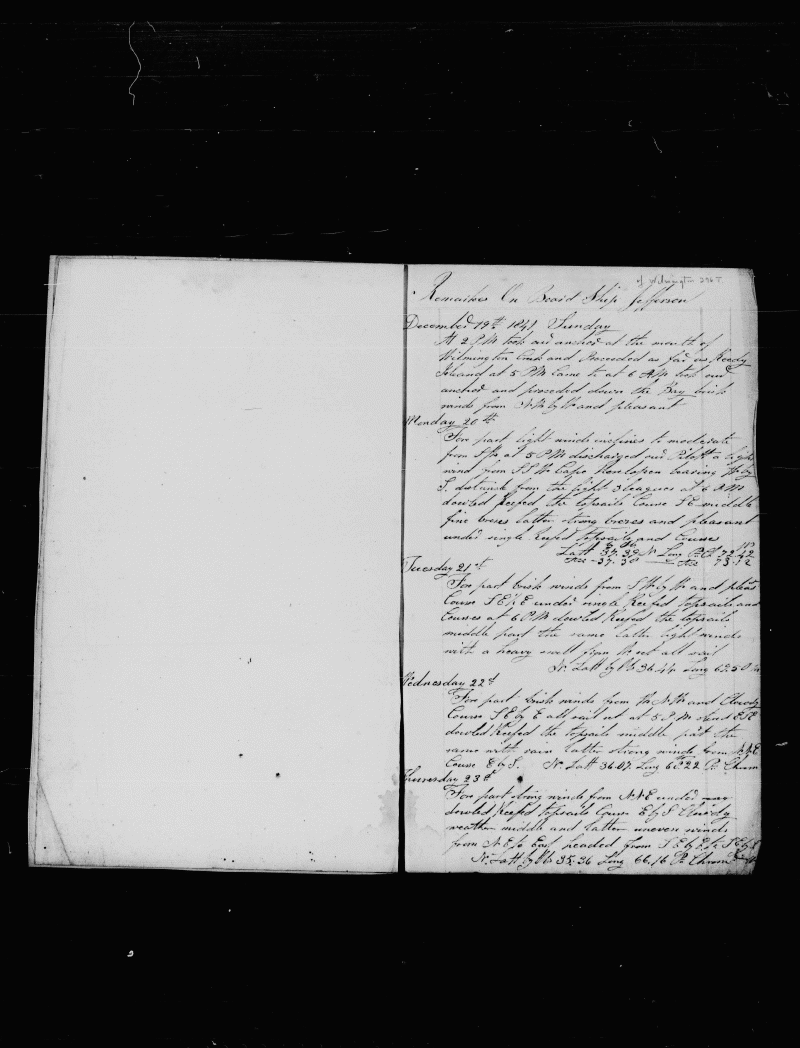 of Wilmington
Remarkes On Board Ship Jefferson
December 19th 1841 Sunday
At 2 PM took our anchor at the mouth of
Wilmington Crick and Proceeded as far as Reedy
Island at 5 PM Came to at 6 AM took our
anchor and proceded down the Bay brisk
winds from N W by W and pleasant
Monday 20th
Fore part light winds inclines to moderate
from at 5 PM discharged our Pilott a light
wind from S S W Cape Henelopen bearing W by
S. distance from the light 3 leagues at 6 PM
doubled Reefed the topsails Course S E middle
fine breses latter strong breses and pleasant
under single Reefed topsails and Courses
Latt 37.39 N Long 72.42
37.30 73.12
Tuesday 21st
Fore part brisk winds from S W by W and pleas
Course S E 1/2 E under single Reefed topsails and
Courses at 6 PM doubled Reefed the topsails
middle part the same latter light winds
with a heavy swell from all sail
N. Latt by Ob 36.44 Long 69.50
Wednesday 22d
Fore part brisk winds from W N W and Cloudy
Course S E by E all sail out at 5 PM
doubled Reefed the topsails middle part the
same with rain latter strong winds from N N E
Course E by S. N. Latt 36.07 Long 22 Pr Chrom
Thursday 23d
Fore part strong winds from N N E under
doubled Reefed topsails Course E by S Cloudy
weather middle and latter uneven winds
from N E to East headed from S E by E to S E by S
N. Latt by Ob 35.36 Long 66.16 Pr Chrom